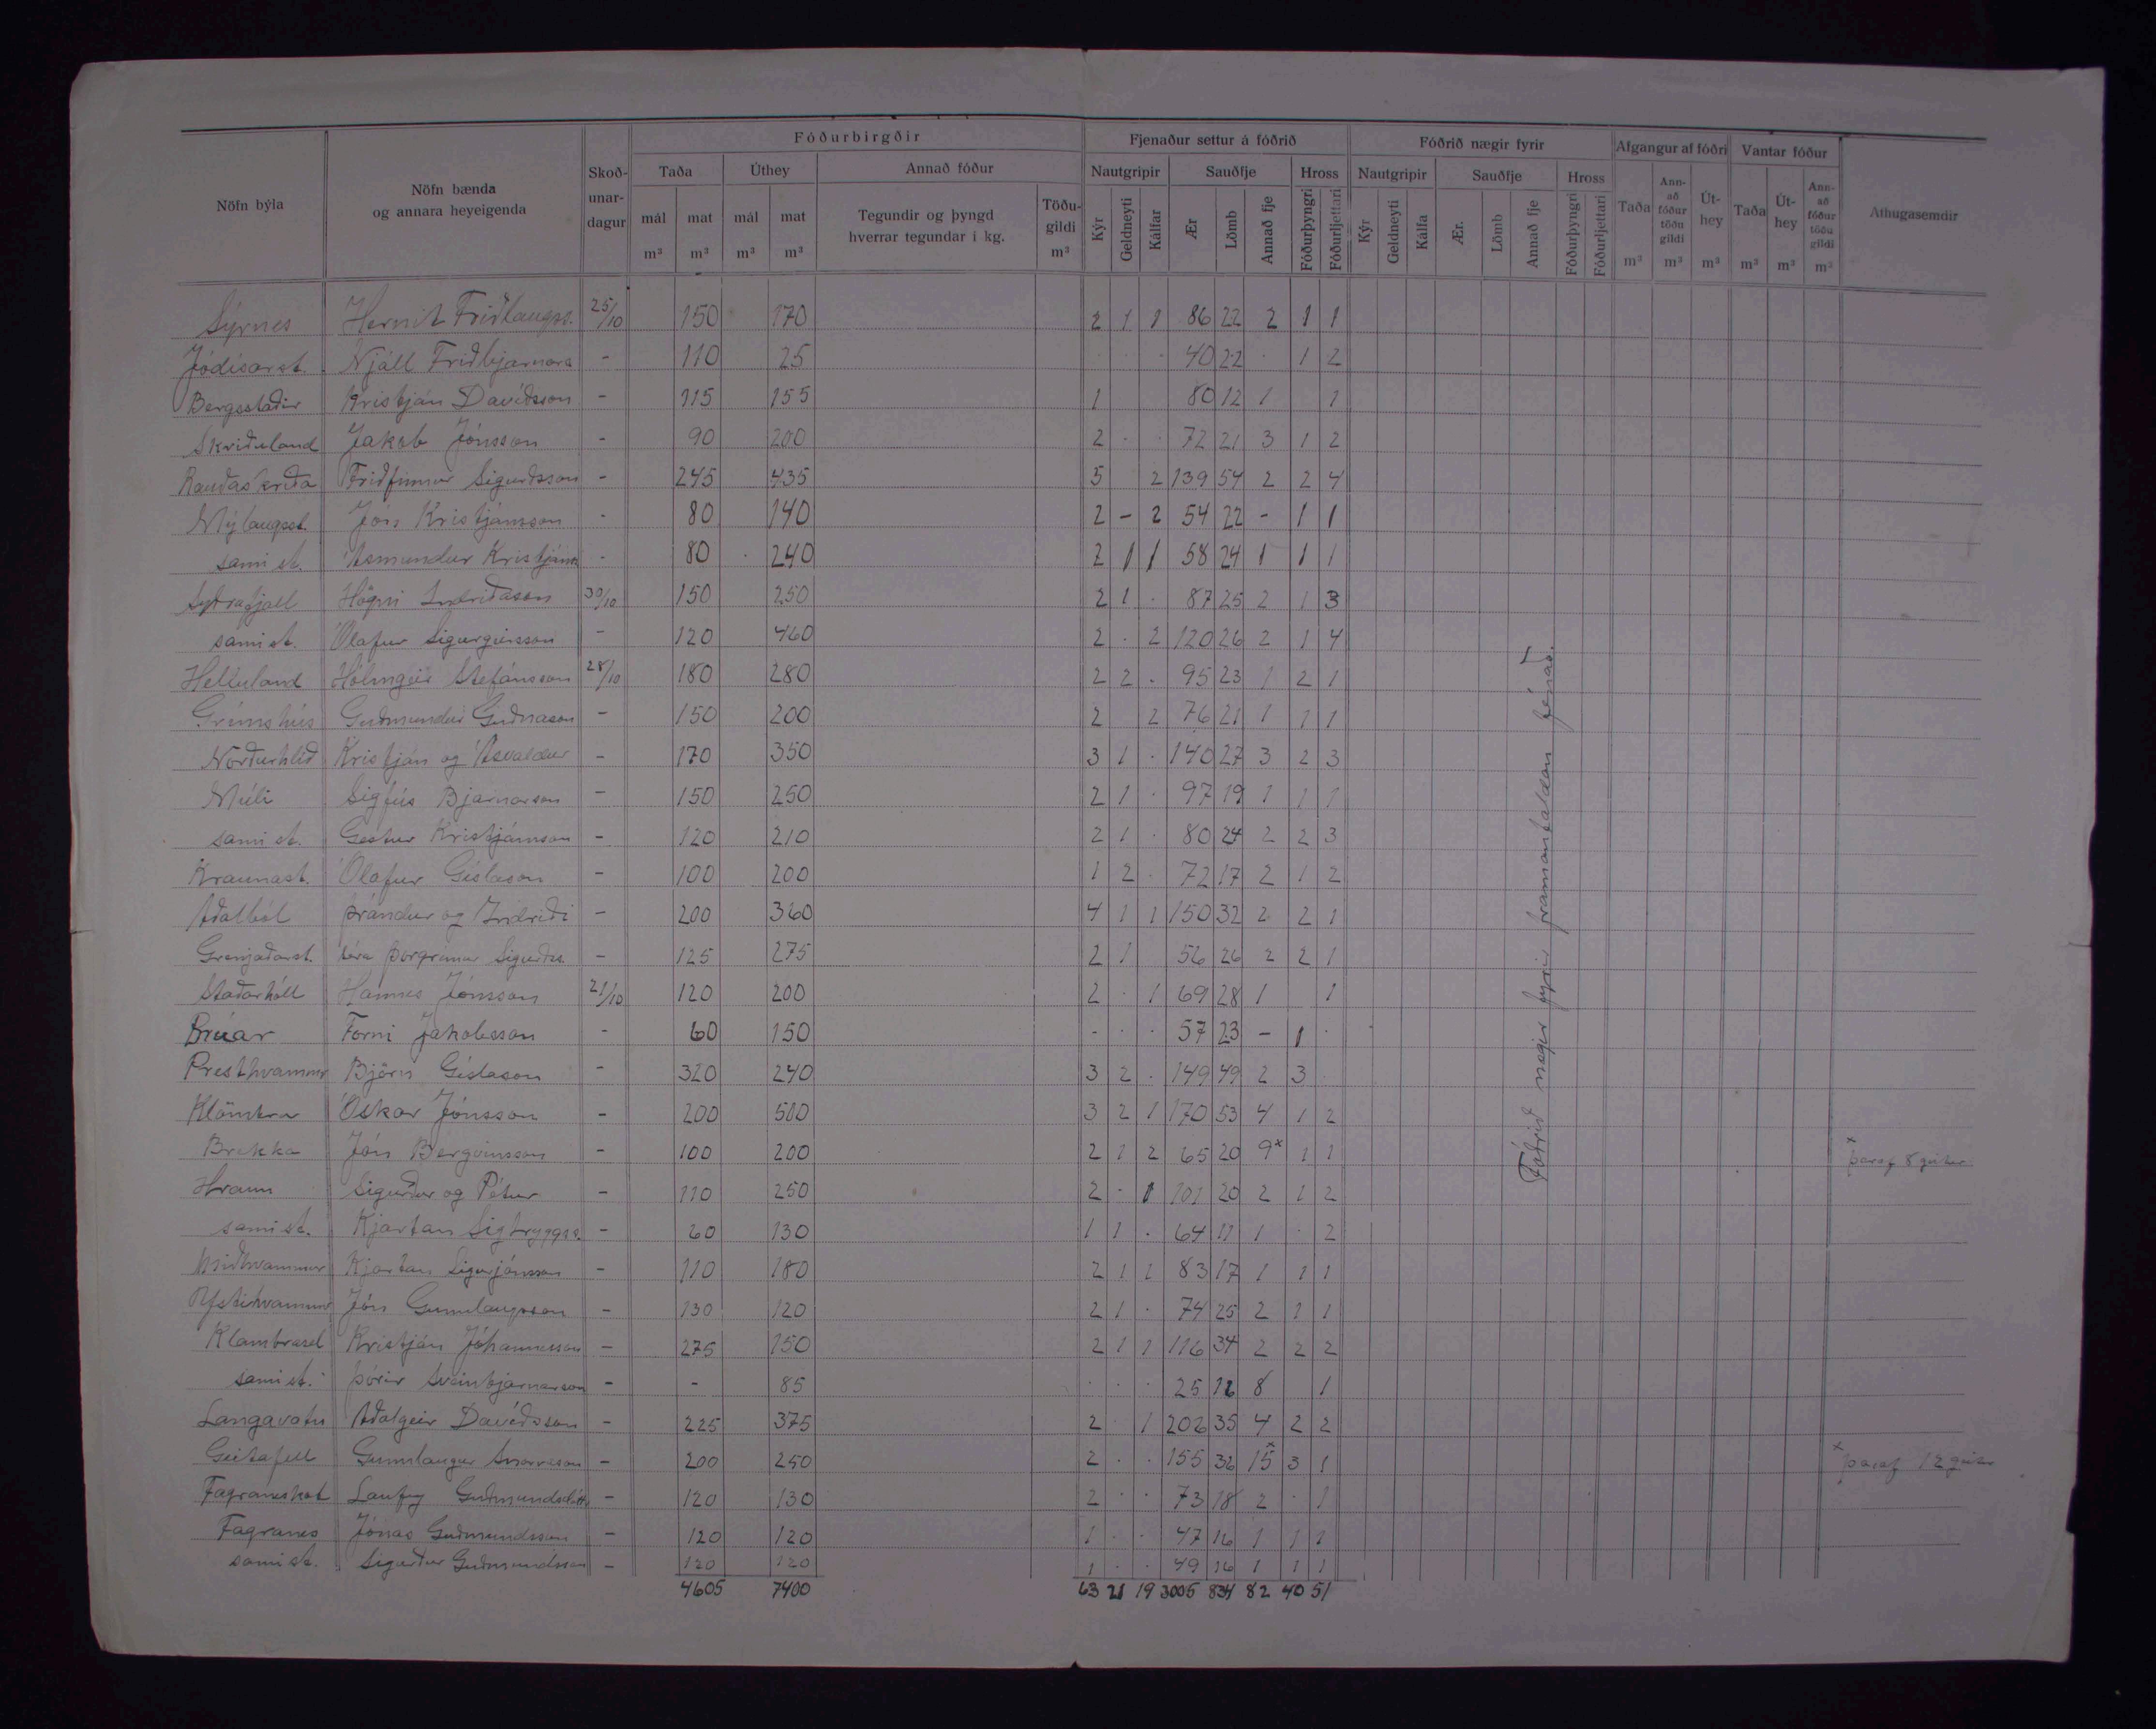 Fóðurbirgðir
Fjenaður settur á fóðrið
Fóðrið nægir fyrir
Afgangur af fóðri
Vantar fóður
Nöfn býla
Nöfn bænda og annara heyeigenda
Skoð-unar-dagur
Taða
Úthey
Annað fóður
Nautgripir
Sauðfje
Hross
Nautgripir
Sauðfje
Hross
Athugasemdir
mál m³
mat m³
mál m³
mat m³
Tegundir og þyngd hverrar tegundar í kg.
Töðu-gildi m³
Kýr
Geldneyti
Kálfar
Ær
Lömb
Annað fje
Fóðurþyngri
Fóðurljettari
Kýr
Geldneyti
Kálfa
Ær.
Lömb
Annað fje
Fóðurþyngri
Fóðurljettari
Taða m³
Ann-að fóður töðu gildi m³
Út-hey m³
Taða m³
Út-hey m³
Ann-að fóður töðu gildi m³
Sýrnes Hernit Friðlaugss. 25/10 150 170 2 1 1 86 22 2 1 1
Jódísarst. Njáll Friðbjarnars - 110 25 . . . 40 22 . 1 2
Bergsstaðir Kristján Davíðsson - 115 155 1 80 12 1 1
Skriðuland Jakob Jónsson - 90 200 2 . . 72 21 3 1 2
Rauðaskriða Friðfinnur Sigurðsson - 245 435 5 2 139 54 2 2 4
Mýlaugsst. Jón Kristjánsson - 80 140 2 - 2 54 22 - 1 1
sami st. Ásmundur Kristjánss - 80 240 2 1 1 58 24 1 1 1
Syðrafjall Högni Indriðason 30/10 150 250 2 1 . 87 25 2 1 3
sami st. Ólafur Sigurgeirsson - 120 460 2 . 2 120 26 2 1 4
Helluland Hólmgeir Stefánsson 28/10 180 280 2 2 . 95 23 1 2 1
Grímshús Guðmundur Guðnason - 150 200 2 2 76 21 1 1 1
Norðurhlíð Kristján og Ásvaldur - 170 350 3 1 . 140 27 3 2 3
Múli Sigfús Bjarnarson - 150 250 2 1 . 97 19 1 1 1
sami st. Gestur Kristjánsson - 120 210 2 1 . 80 24 2 2 3
Kraunast. Ólafur Gíslason - 100 200 1 2 . 72 17 2 1 2
Aðalból Þrándur og Indriði - 200 360 4 1 1 150 32 2 2 1
Grenjaðarst. séra Þorgrímur Sigurðss. - 125 275 2 1 56 26 2 2 1
Staðarhóll Hannes Jónsson 21/10 120 200 2 . 1 69 28 1 1
Brúar Forni Jakobsson - 60 150 - . . 57 23 - 1 .
Presthvammur Björn Gíslason - 320 240 3 2 . 149 49 2 3 .
Klömbra Óskar Jónsson - 200 500 3 2 1 170 53 4 1 2
Brekka Jón Bergvinsson - 100 200 2 1 2 65 20 9x 1 1 x þaraf 8 geitur
Hraun Sigurður og Pétur - 110 250 2 . 1 101 20 2 1 2
sami st. Kjartan Sigtryggss. - 60 130 1 1 . 64 11 1 . 2
Miðhvammur Kjartan Sigurjónsson - 110 180 2 1 1 83 17 1 1 1
Ystihvammur Jón Gunnlaugsson - 130 120 2 1 . 74 25 2 1 1
Klambrasel Kristján Jóhannesson - 275 150 2 1 1 116 34 2 2 2
sami st. Þórir Sveinbjarnarson - - 85 . . . 25 8 1
Langavatn Aðalgeir Davíðsson - 225 375 2 . 1 202 35 4 2 2
Geitafell Gunnlaugur Snorrason - 200 250 2 . . 155 32 15x 3 1 x þaraf 12 geitur
Fagraneskot Laufey Guðmundsdóttir - 120 130 2 . . 73 18 2 . 1
Fagranes Jónas Guðmundsson - 120 120 1 . . 47 16 1 1 1
sami st. Sigurður Guðmundsson - 120 120 1 . . 49 16 1 1 1
4605 7400 63 21 19 3005 834 82 40 51
Fóðrið nægir fyrir framantaldan fénað.